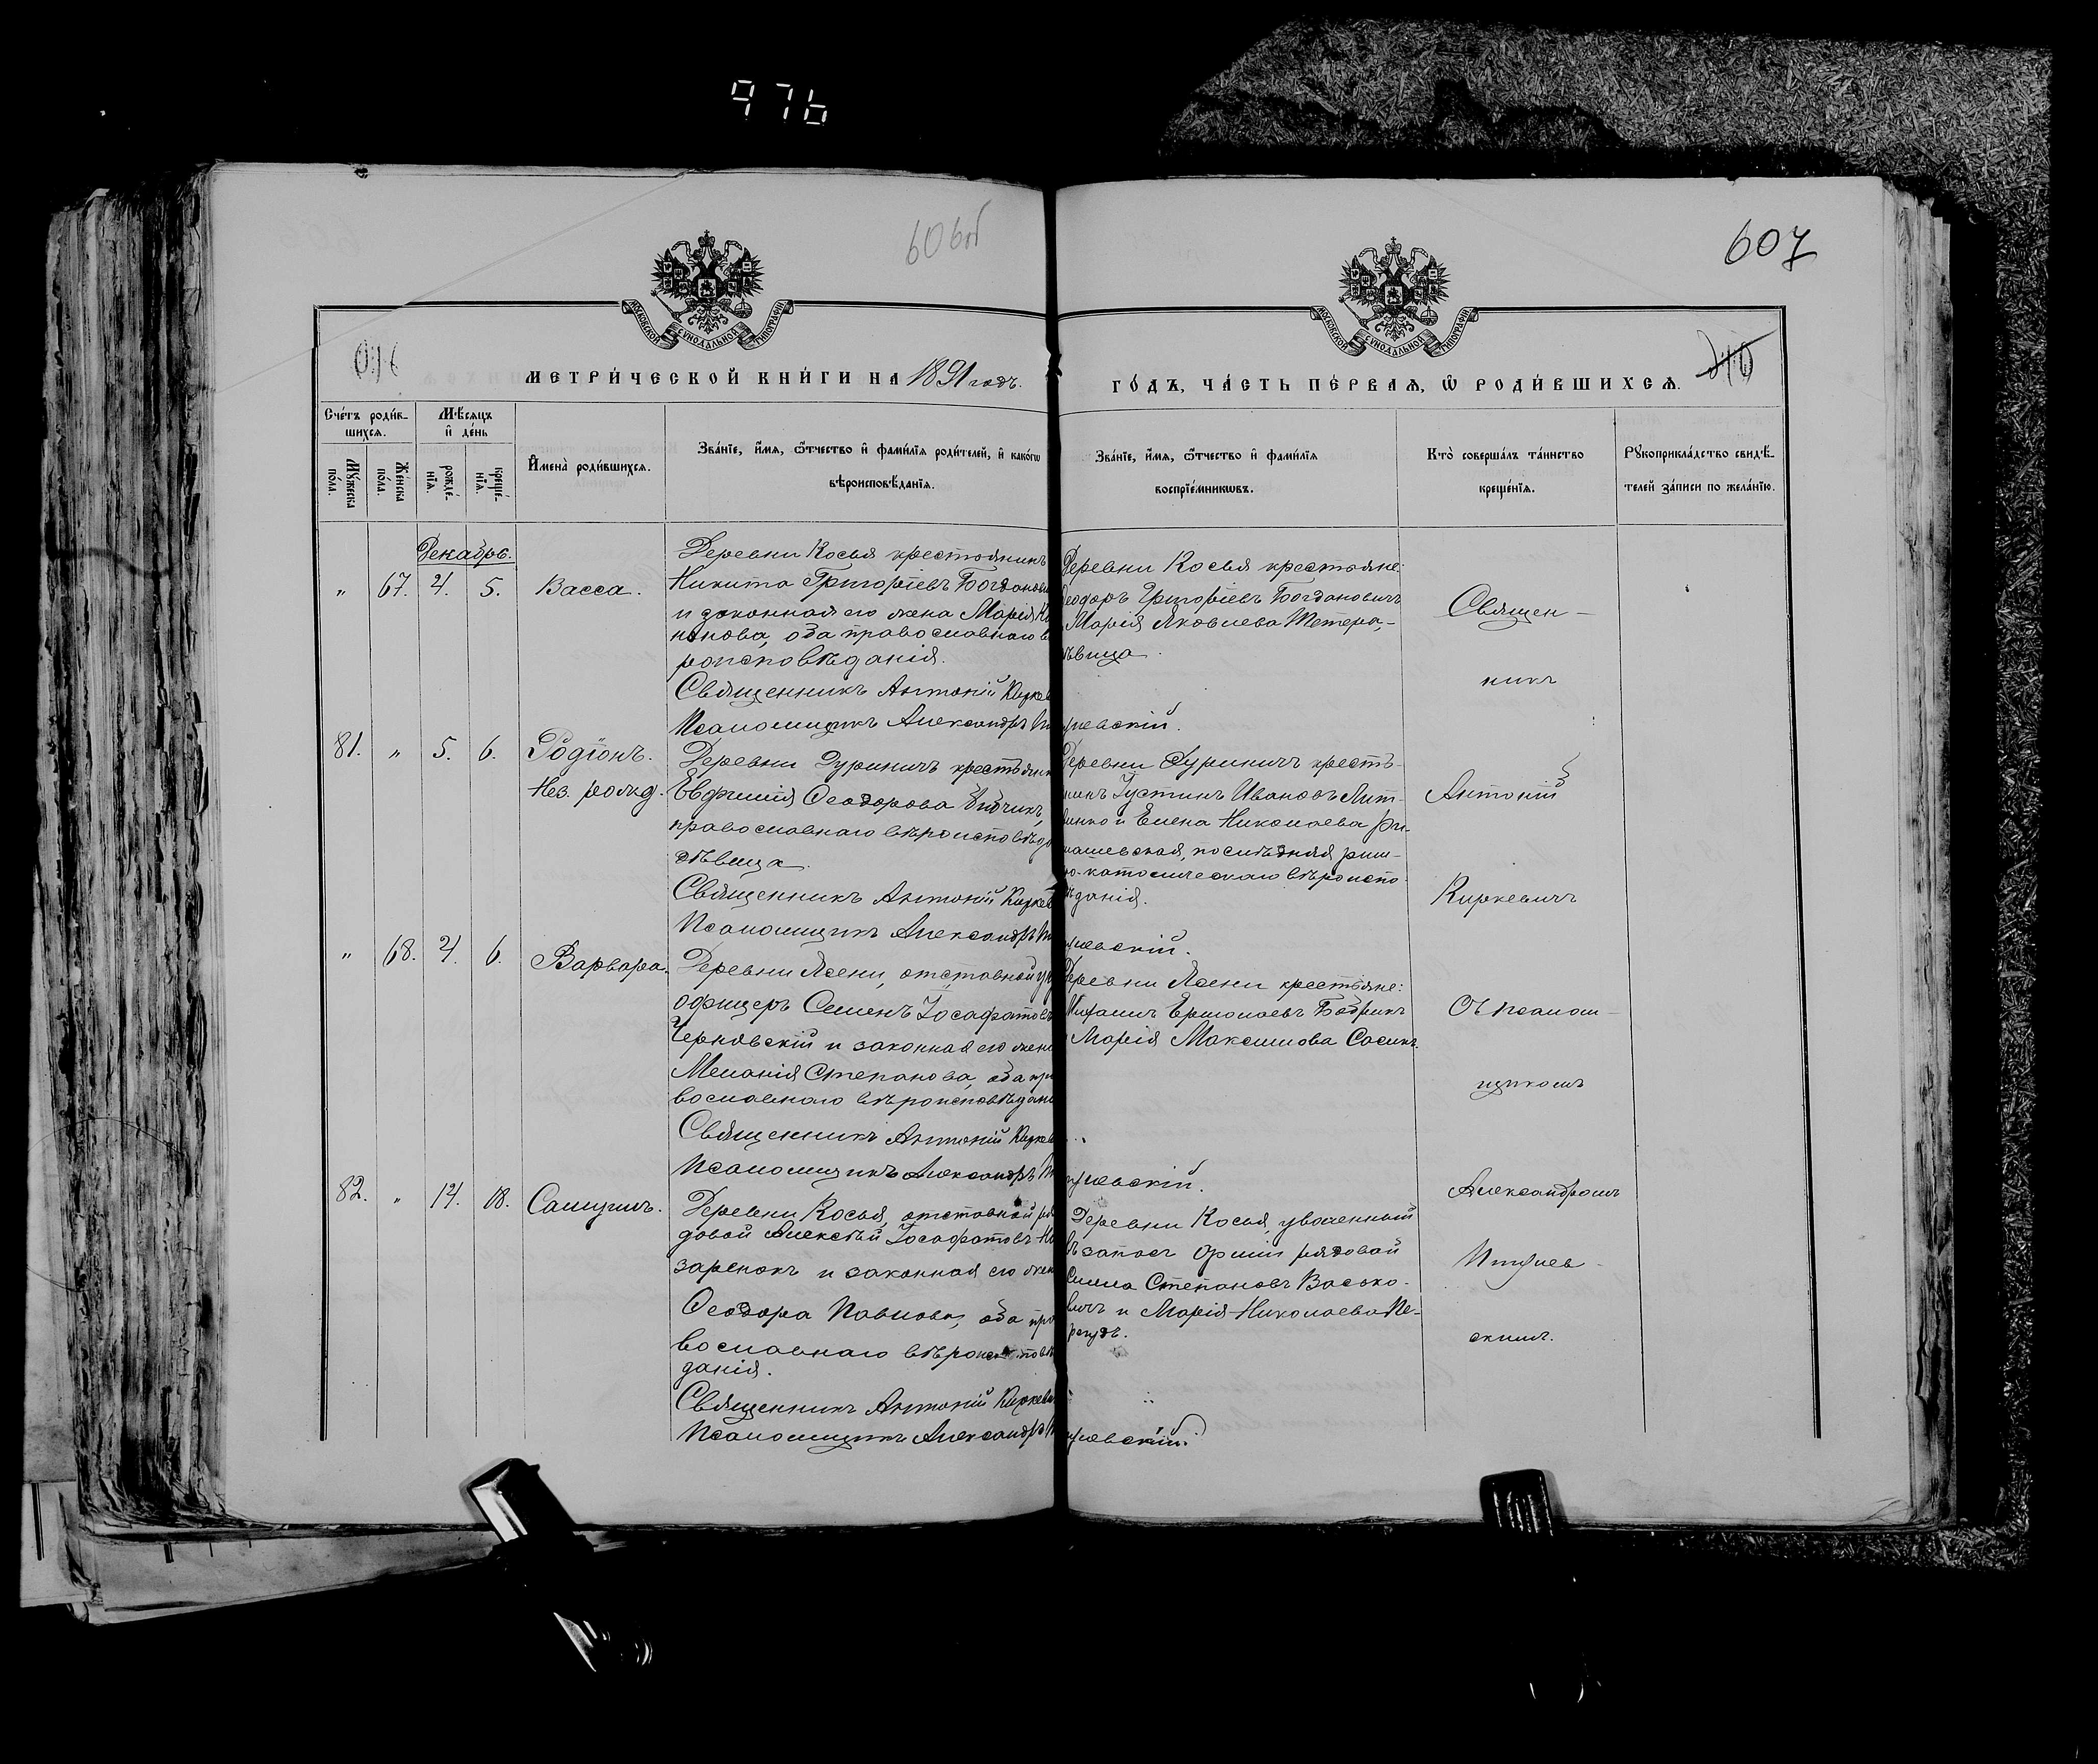 976
606об
607
МОСКОВСКОЙ СѴНОДАЛЬНОЙ ТИПОГРАФІИ
МОСКОВСКОЙ СѴНОДАЛЬНОЙ ТИПОГРАФІИ
МЕТРИ́ЧЕСКОЙ КНИ́ГИ НА 1891 годъ.
ГО́ДЪ, ЧА́СТЬ ПЕ́РВАѦ, Ѡ҆ РОДИ́ВШИХСѦ.
Сче́тъ роди́в-
шихсѧ.
Мꙋ́жеска по́ла.
Же́нска по́ла.
Мѣ́сѧцъ
и҆ де́нь
рожде́-
нїѧ.
креще́-
нїѧ.
И҆мена̀ роди́вшихсѧ.
Зва́нїе, и҆́мѧ, ѻ҆́тчество и҆ фами́лїѧ роди́телей, и҆ како́гѡ
вѣроисповѣ́данїѧ.
Зва́нїе, и҆́мѧ, ѻ҆́тчество и҆ фами́лїѧ
воспрїе́мникѡвъ.
Кто̀ соверша́лъ та́инство
креще́нїѧ.
Рꙋкоприкла́дство свидѣ́-
телей за́писи по жела́нїю.
Декабрь.
" 67. 4. 5. Васса.
Деревни Косья крестьянинъ
Никита Григоріевъ Богданови
и законная его жена Марія
нонова, оба православнаго в
роисповѣданія.
Священникъ Антоній Киркев
Псаломщикъ Александръ
Деревни Косья крестьяне:
еодоръ Григоріевъ Богдановичъ
Марія Яковлева Тетера,
ѣвица.
левскій.
81. " 5. 6. Родіонъ.
Нез. рожд.
Деревни Дуриничъ крестьянк
Евфимія Ѳеодорова
православнаго вѣроисповѣда
дѣвица.
Священникъ Антоній Киркев
Псаломщикъ Александръ
Деревни Дуриничъ кресть-
нинъ Іустинъ Ивановъ Лит-
винко и Елена Николаева Ри-
машевская, послѣдняя рим-
о-католическаго вѣроиспо-
ѣданія.
левскій.
" 68. 4. 6. Варвара.
Деревни Ясени, отставной ун
офицеръ Семенъ Іосафатовъ
Черновскій и законная его жена
Меланія Степанова, оба пра
вославнаго вѣроисповѣдані
Священникъ Антоній Киркев
Псаломщикъ Александръ
Деревни Ясени крестьяне:
Михаилъ Ермолаевъ Бобрикъ
Марія Максимова Сасикъ.
левскій.
82. " 14. 18. Самуилъ.
Деревни Косья, отставной ря
довой Алексѣй Іосафатовъ На
заренокъ и законная его жен
Ѳеодора Павлова, оба пра
вославнаго вѣроисповѣ
данія.
Священникъ Антоній Киркеви
Псаломщикъ Александръ
Деревни Косья, уволенный
въ запасъ арміи рядовой
Симеа Степановъ Васько-
вичъ и Марія Николаева Пе-
рездъ.
левскій.
Священ-
никъ
Антоній
Киркевичъ
Съ псалом-
щикомъ
Александромъ
Пт
скимъ.